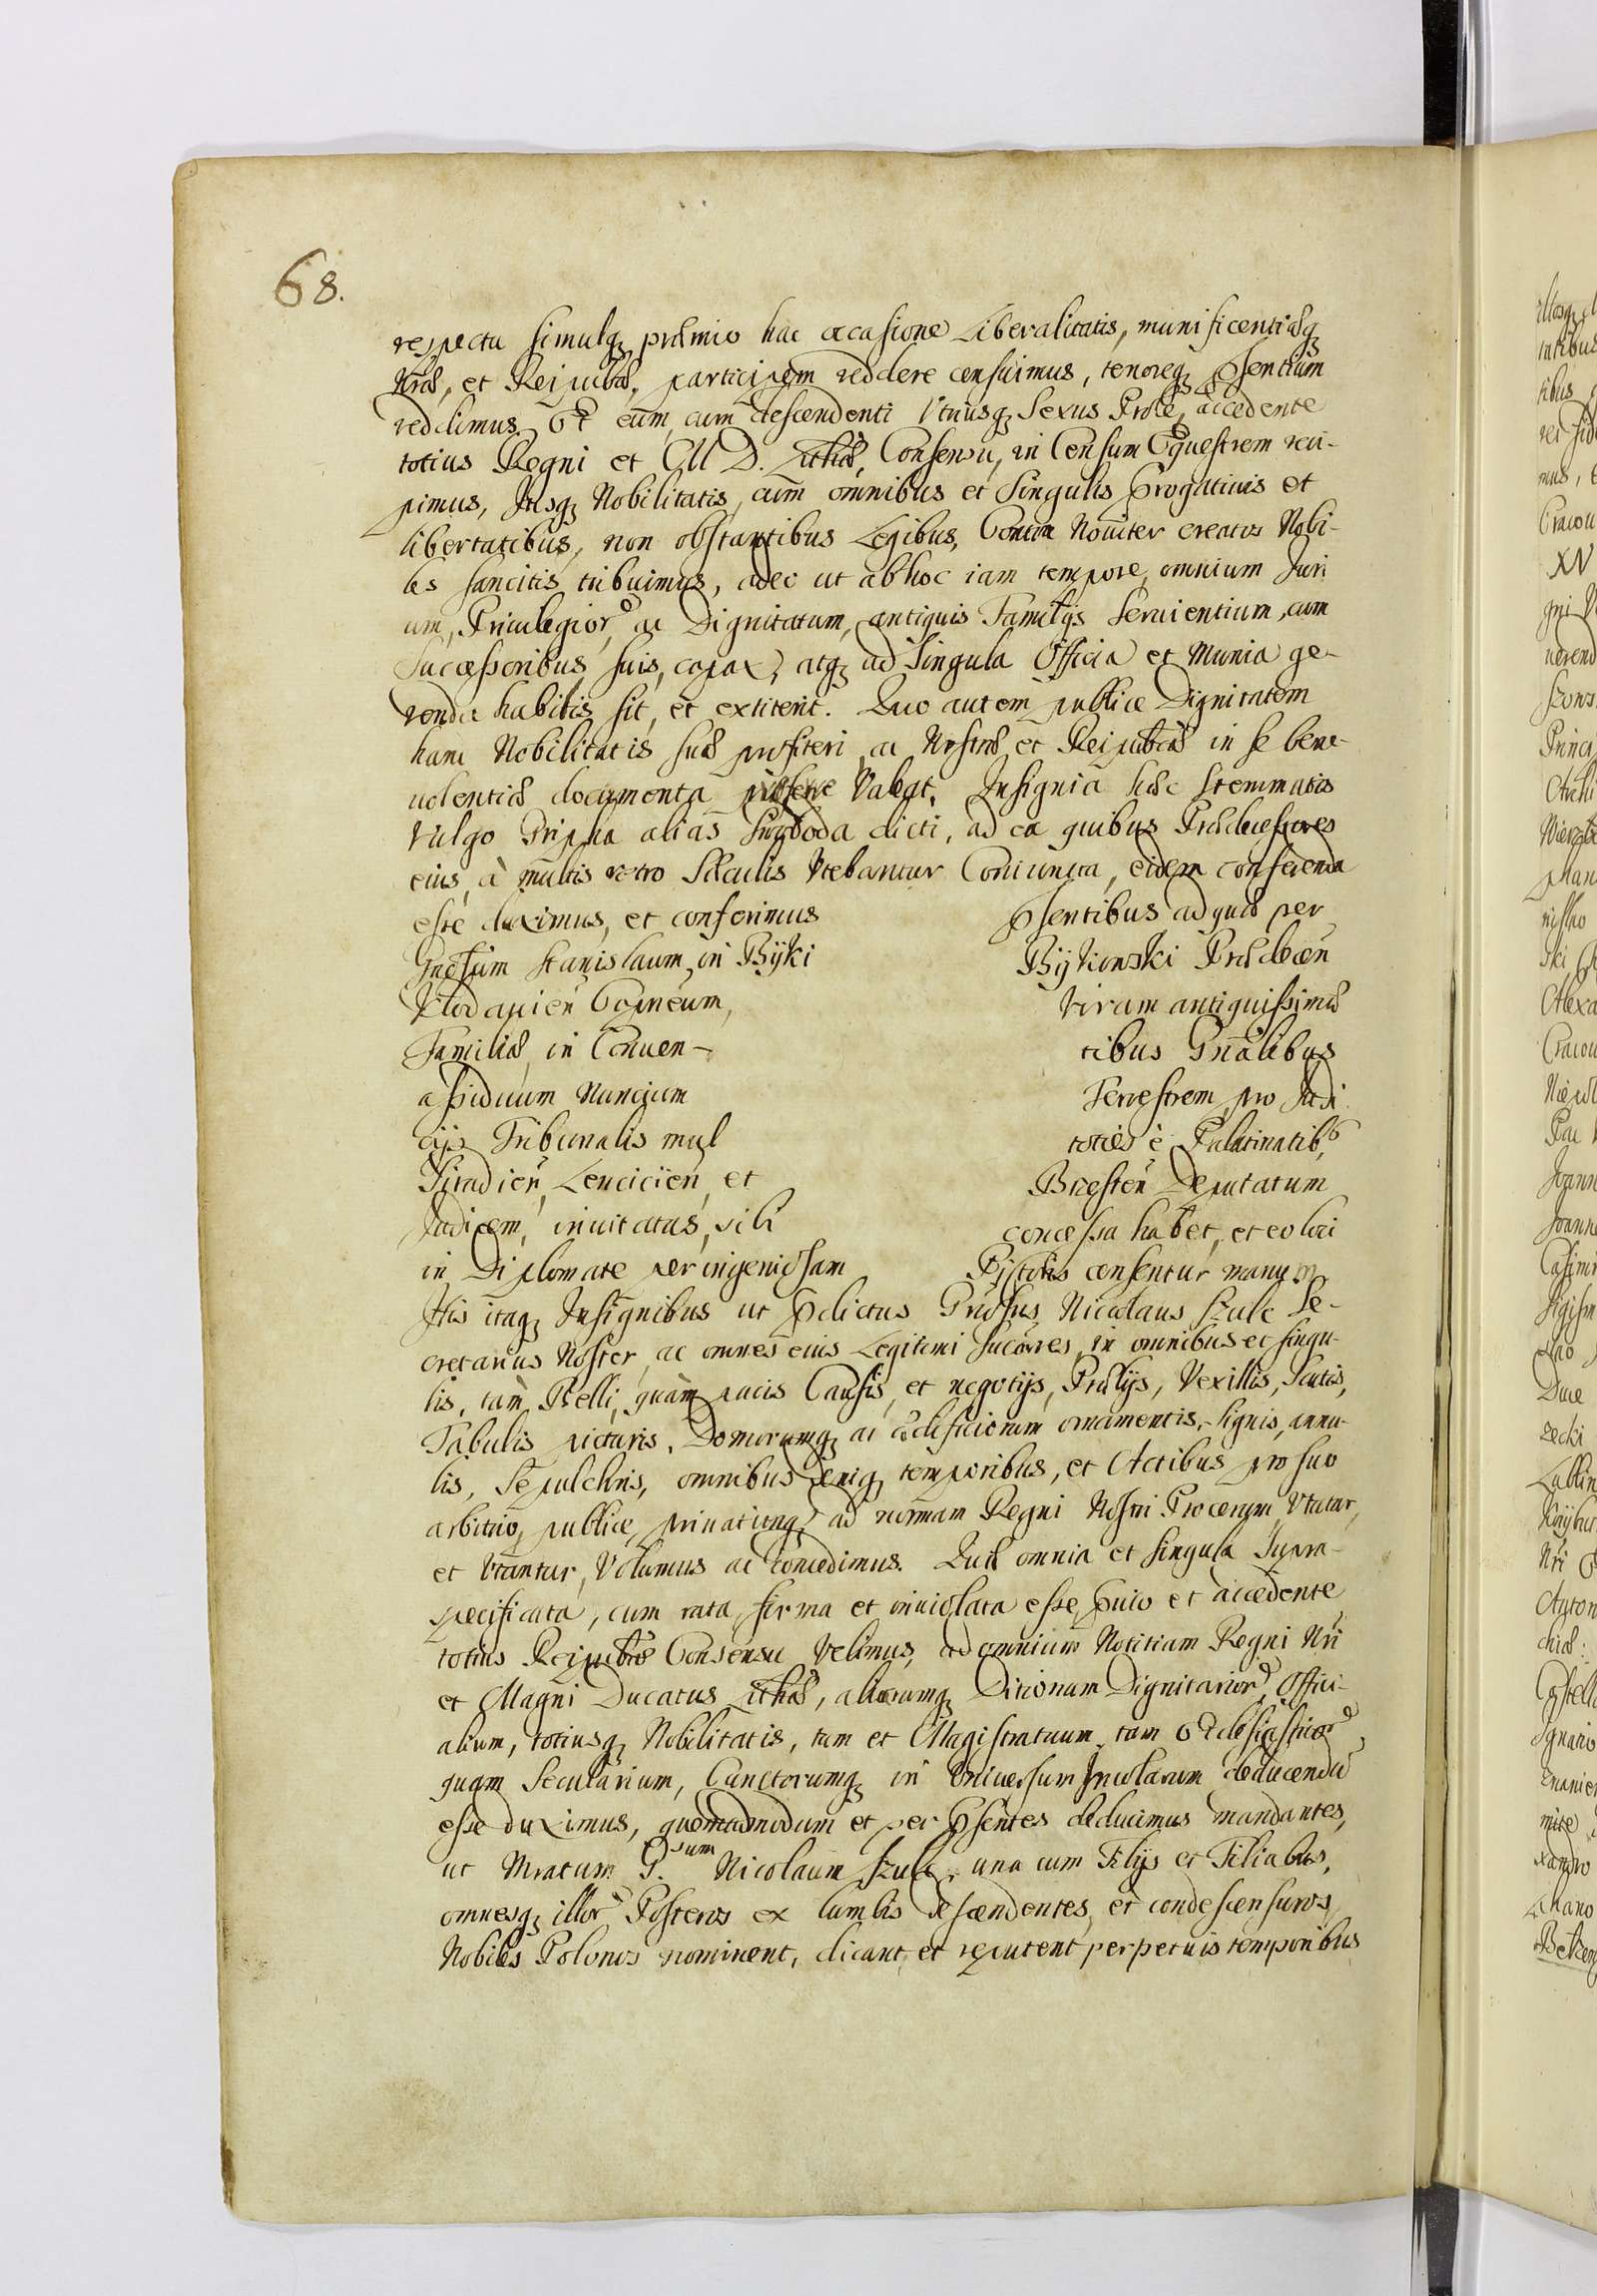 68.
respectu simulq₃ præmio hac occasione Liberalitatis, munificentiæq₃
Nr̃æ, et Reipublæ, participem reddere censuimus, tenoreq₃ p̃sentium
reddimus. Et eum, cum descendenti Utriusq₃ Sexus Prole, accedente
totius Regni et M D. Lithæ, Consensu, in Censum Equestrem reci-
pimus, Jusq₃ Nobilitatis, cum omnibus et Singulis p̃rogatiuis et
libertatibus, non obstantibus Legibus, Contra Nouiter creatos Nobi-
les sancitis tribuimus, adeo ut abhoc iam tempore, omnium Juri
um, Priuilegior̃, ac Dignitatum, antiquis Familijs Seruientium, cum
Successoribus suis, capax, atq₃ ad Singula Officia et Munia ge-
renda habilis sit, et extiterit. Quo autem publice Dignitatem
hanc Nobilitatis suæ profiteri, ac Nostræ et Reipublæ in se bene-
uolentiæ documenta Valeat, Insignia hæc Stemmatis
Vulgo Gripha alias Swoboda dicti, ad ea quibus Prædecessores
eius, à multis retro Sæculis Utebantur Coniuncta, eidem conferenda
esse duximus, et conferimus p̃sentibus adquæ per
Gnẽsum Stanislaum, in Byki Bijkowski Prædecẽn
Wlodapieñ Capneum, Virum antiquissimæ
Familiæ, in Conuen- tibus Gñalibus
assiduum Nuncium Terrestrem, pro Judi
cijs Tribunalis mul toties è Palatinatib,
Siradieñ, Lenciciẽn, et Bresteñ Deputatum
Judicem, inuitatus, sibi concessa habet, et eo loci
in Diplomate per ingeniosam Pictoris censentur manum.
His itaq₃ Insignibus ut p̃dictus Gñosus Nicolaus Szulc Se-
cretarius Noster, ac omnes eius Legitimi Succr̃es, in omnibus et singu-
lis, tàm Belli, quàm pacis Causis, et negotijs, Prælijs, Vexillis, Scutis,
Tabulis picturis, Domorumq₃ ac ædificiorum ornamentis, Signis, annu-
lis, Sepulchris, omnibus deniq₃ temporibus, et Actibus pro suo
arbitrio, publice, priuatimq₃, ad normam Regni Nostri Procerum Utatur,
et Utantur, Volumus ac Concedimus. Quæ omnia et singula Supra-
specificata, cum rata, firma et inuiolata esse, p̃uio et accedente
totius Reipublæ Consensu Velimus, ad omnium Notitiam Regni Nr̃i
et Magni Ducatus Lithæ, aliorumq₃ Ditionum Dignitarior̃, Offici-
alium, totiusq₃ Nobilitatis, tam et Magistratuum, tam Ecclesiasticor̃,
quam Secularium, Cunctorumq₃ in Uniuersum Incolarum deducenda
esse duximus, quemadmodum et per p̃sentes deducimus mandantes,
ut Mratum G.sum Nicolaum Szulc, una cum Filijs et Filiabus,
omnesq₃ illor̃ Posteros ex lumbis descendentes, et condescensuros,
Nobiles Polonos nominent, dicant, et reputent perpetuis temporibus